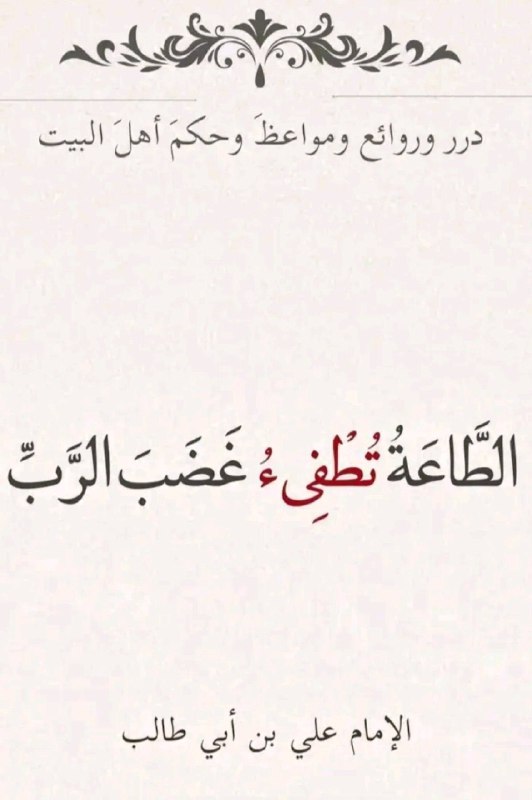 درر وروائع ومواعظَ وحكمَ أهلَ البيت
الطَّاعَةُ تُطْفِىءُ غَضَبَ الرَّبِّ
الإمام علي بن أبي طالب